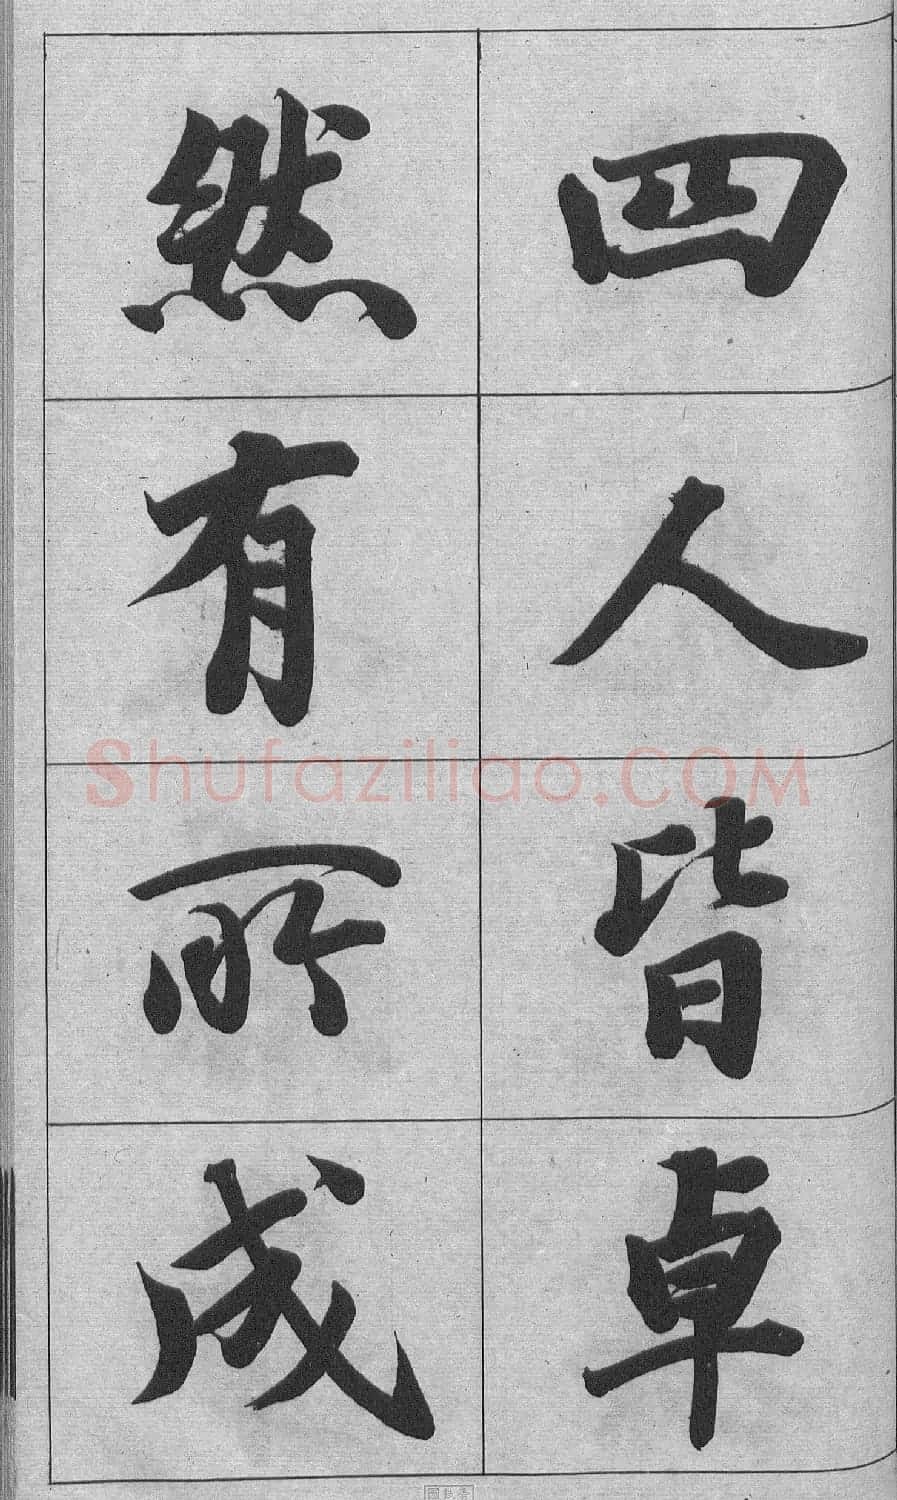 四人皆卓
然有所成
Shufaziliao.COM